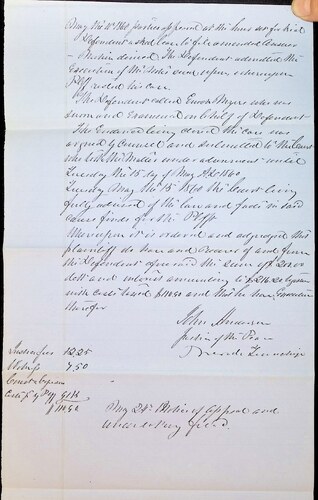 May the 11th 1860 parties appeared at the hour set for trial
Defendant asked leave to file amended answer
Motion denied The Defendant admitted the
Execution of the note sued upon whereupon
Plff rested his case.
The Defendant called Enoch Myers who was
sworn and Examined on behalf of Defendant
The Evidence being closed the case was
argued by Counsel and submitted to the Court
who took the matter under advisement until
Tuesday the 15th day of May AD 1860
Tuesday May the 15th 1860 the Court being
fully advised of the law and facts in said
cause finds for the Plff
Whereupon it is ordered and adjudged that
plaintiff do have and recover of and from
the Defendant the sum of
debt and interest amounting to together
with costs taxed and that he have Execution
therefor
John
Justice of the Peace
Township
Justices fees 12.25
Witness 7.50
Court
May 24th Notice of Appeal and
undertaking filed.